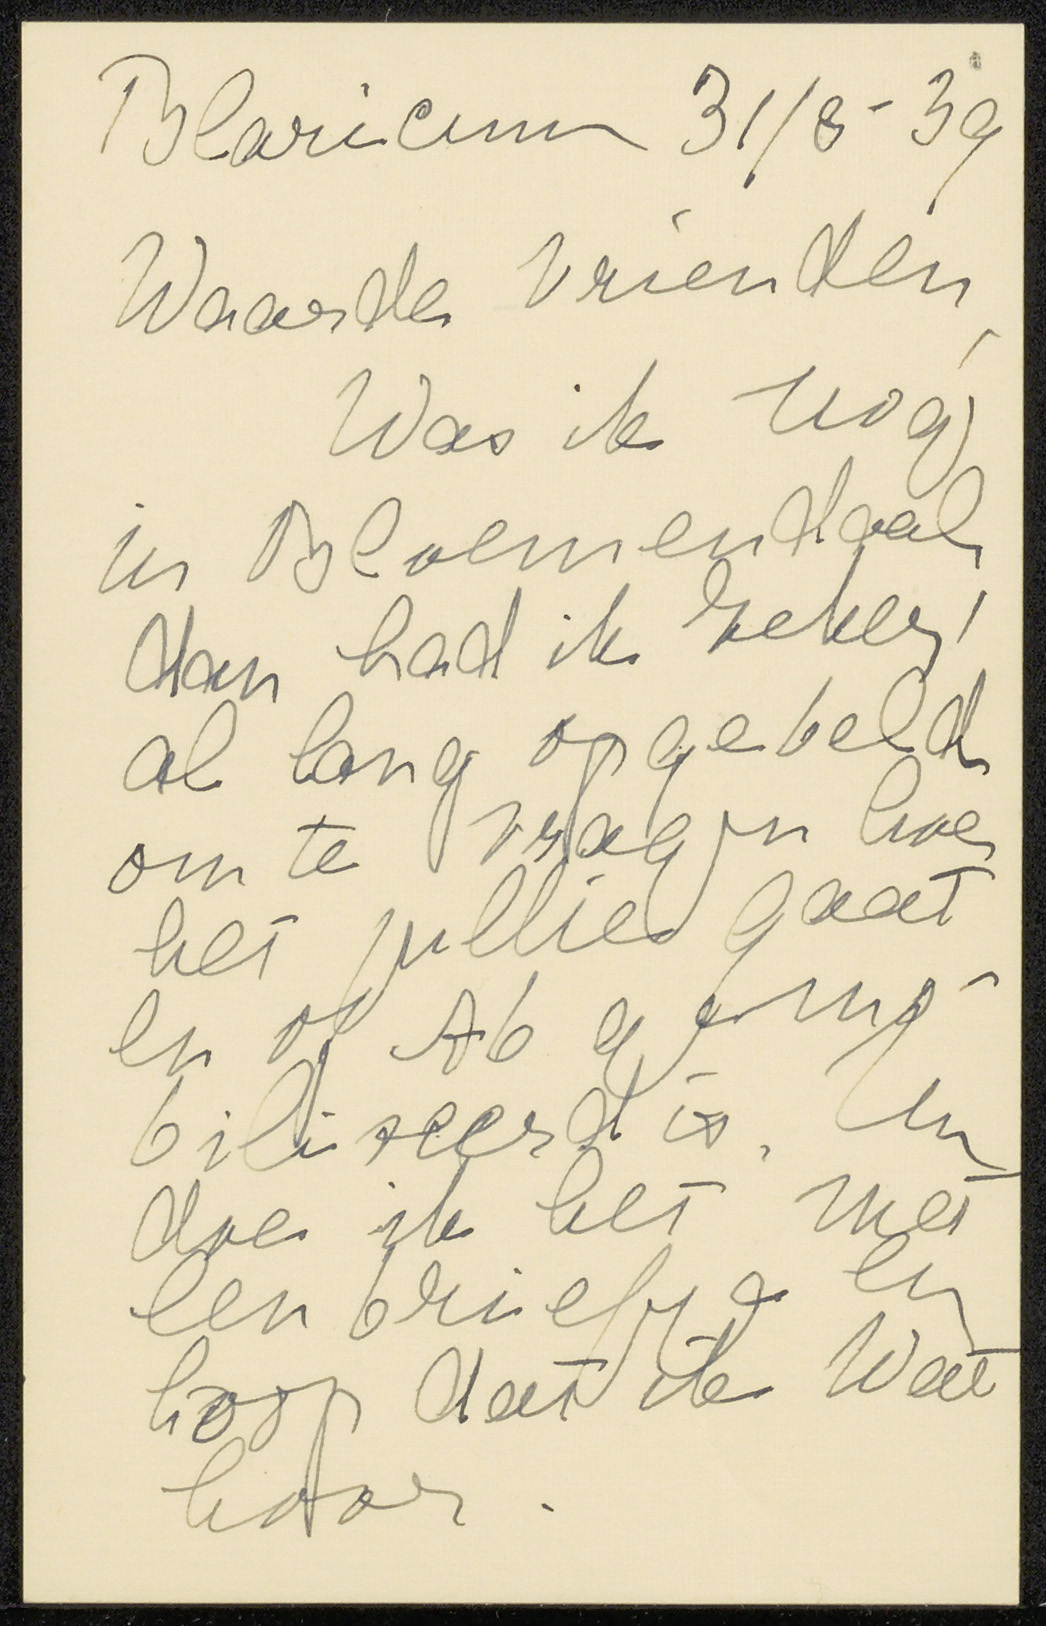 Blaricum 31/8-39
Waarde vrienden,
Was ik nog
in Bloemendaal
dan had ik zeker
al lang opgebeld
om te vragen hoe
het jullie gaat
en of Ab gemo-
biliseerd is. Nu
doe ik het met
een briefje en
hoop dat ik wat
hoor.